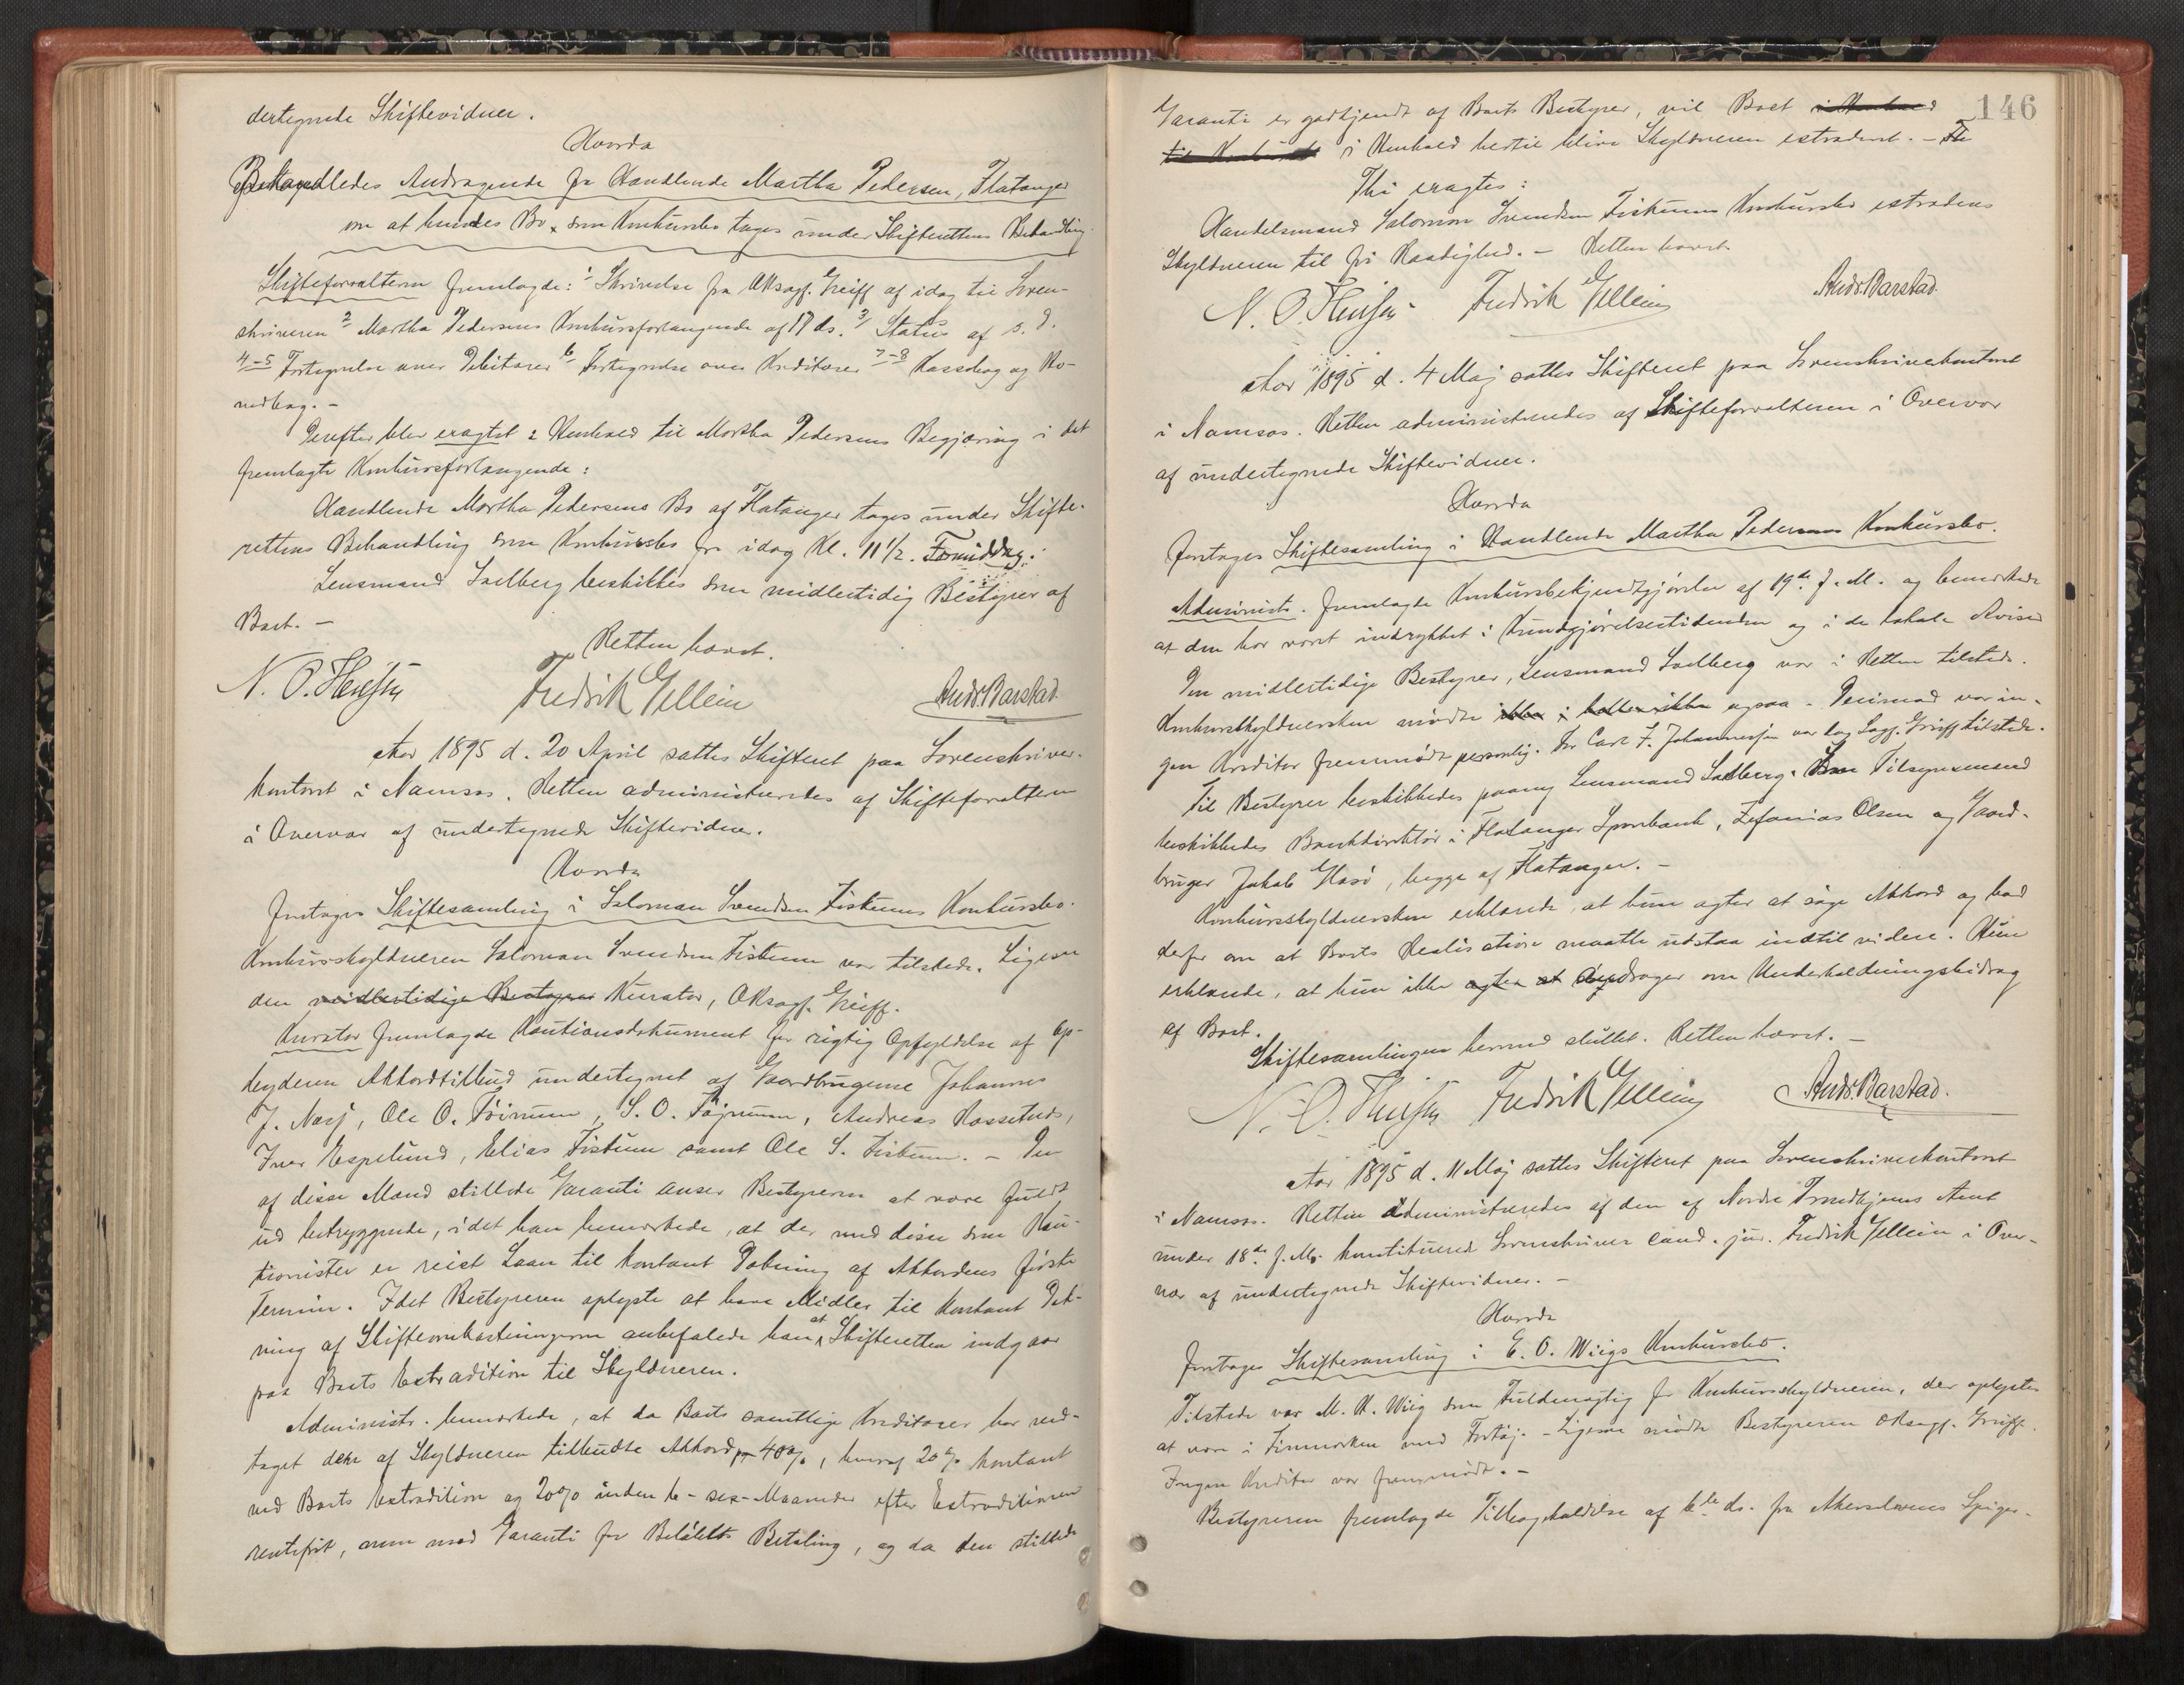 dertegnede Skiftevidner.
Hvorda
Behandledes Andragende fra Handlende Martha Pedersen, Flatanger
om at hendes Bo som Konkursbo tages under Skifterettens Behandling.
Skifteforvalteren fremlagde: 1 Skrivelse fra OKsagf. Greiff af idag til Soren-
skriveren 2 Martha Pedersens Konkursforlangende af 17 ds. 3/ Status af s. d.
4-5 Fortegnelse over Debitorer 6 Fortegnelse over Kreditorer 7-8 Kassebog og Ho-
vedbog. -
Derefter blev eragtet i Henhold til Martha Pedersens Begjæring i det
fremlagte Konkursforlangende:
Handlende Martha Pedersens Bo af Flatanger tages under Skifte-
rettens Behandling som Konkursbo fra idag Kl. 11 1/2 Formiddag.
Lensmand Solberg beskikkes som midlertidig Bestyrer af
Boet. -
Retten hævet.
Fredrik Gellein
Andr. Barstad
Aar 1895 d. 20 April sattes Skifteret paa Sorenskriver-
kontoret i Namsos. Retten administreredes af Skifteforvalteren
i Overvær af undertegnede Skiftevidner.
Hvorda
foretages Skiftesamling i Salomon Svendsen Fiskums Konkursbo.
Konkursskyldneren Salomon Svendsen Fiskum var tilstede. Ligesaa
den midlertidige Bestyrer Kurator, OKsagf. Greiff.
Kurator fremlagde Kautionsdokument for rigtig Opfyldelse af Op-
byderens Akkordtilbud undertegnet af Gaardbrugerne Johannes
J. , Ole O. , S. O. , Andreas ,
Iver Espelund, Elias Fiskum samt Ole S. Fiskum. - Den
af disse Mænd stillede Garanti anser Bestyreren at være fuldt
ud betryggende, idet han bemærkede, at der med disse som Kau-
tionister er reist Laan til kontant Dækning af Akkordens første
Termin. Idet Bestyreren oplyste at have Midler til kontant Dæk-
ning af Skifteomkostningerne anbefalede han at Skifteretten indgaar
paa Boets Extradition til Skyldneren.
Administr. bemærkede, at da Boets samtlige Kreditorer har ved-
taget den af Skyldneren tilbudte Akkord 40%, hvoraf 20% kontant
ved Boets Extradition og 20% inden 6 - sex - Maaneder efter Extraditionen
rentefrit, men mod Garanti for Beløbets Betaling, og da den stillede
146
Garanti er godkjendt af Boets Bestyrer, vil Boet i Henhold
til i Henhold hertil blive Skyldneren extraderet. - Th
Thi eragtes:
Handelsmand Salomon Svendsen Fiskums Konkursbo extraderes
Skyldneren til fri Raadighed. - Retten hævet.
Fredrik Gellein
Andr. Barstad.
Aar 1895 d. 4 Maj sattes Skifteret paa Sorenskriverkontoret
i Namsos. Retten administreredes af Skifteforvalteren i Overvær
af undertegnede Skiftevidner.
Hvorda
foretages Skiftesamling i Handlende Martha Pedersens Konkursbo.
Administr. fremlagte Konkursbekjendtgjørelse af 19de f. M. og bemærkede
at den har været indrykket i Kundgjørelsestidenden og i de lokale Aviser
Den midlertidige Bestyrer, Lensmand Solberg var i Retten tilstede.
Konkursskyldnersken mødte ikke i ikke ogsaa. Derimod var in-
gen Kreditor fremmødt personlig. For Carl F. Johannesen var dog Sagf. Greiff tilstede.
Til Bestyrer beskikkedes paany Lensmand Solberg. Som Tilsynsmænd
beskikkedes Bankdirektør i Flatanger Sparebank, Zefanias Olsen og Gaard-
bruger Jakob Glasø, begge af Flatanger. -
Konkursskyldnersken erklærede, at hun agter at søge Akkord og bad
derfor om at Boets Realisation maatte udstaa indtil videre. Hun
erklærede, at hun ikke agter at andrager om Underholdningsbidrag
af Boet.
Skiftesamlingen hermed sluttet. Retten hævet. -
Fredrik Gellein
Andr. Barstad.
Aar 1895 d. 11 Maj sattes Skifteret paa Sorenskriverkontoret
i Namsos. Retten administreredes af den af Nordre Trondhjems Amt
under 18de f. M. konstituerede Sorenskriver cand. jur. Fredrik Gellein i Over-
vær af undertegnede Skiftevidner. -
Hvorda
foretages Skiftesamling i E. O. Wiigs Konkursbo.
Tilstede var M. K. Wiig som Fuldmægtig for Konkursskyldneren, der oplystes
at være i Finmarken med Fartøj. - Ligesaa mødte Bestyreren OKsagf. Greiff.
Ingen Kreditor var fremmødt. -
Bestyreren fremlagde Tilbagekaldelse af 6te ds. fra Akerselvens Spiger-